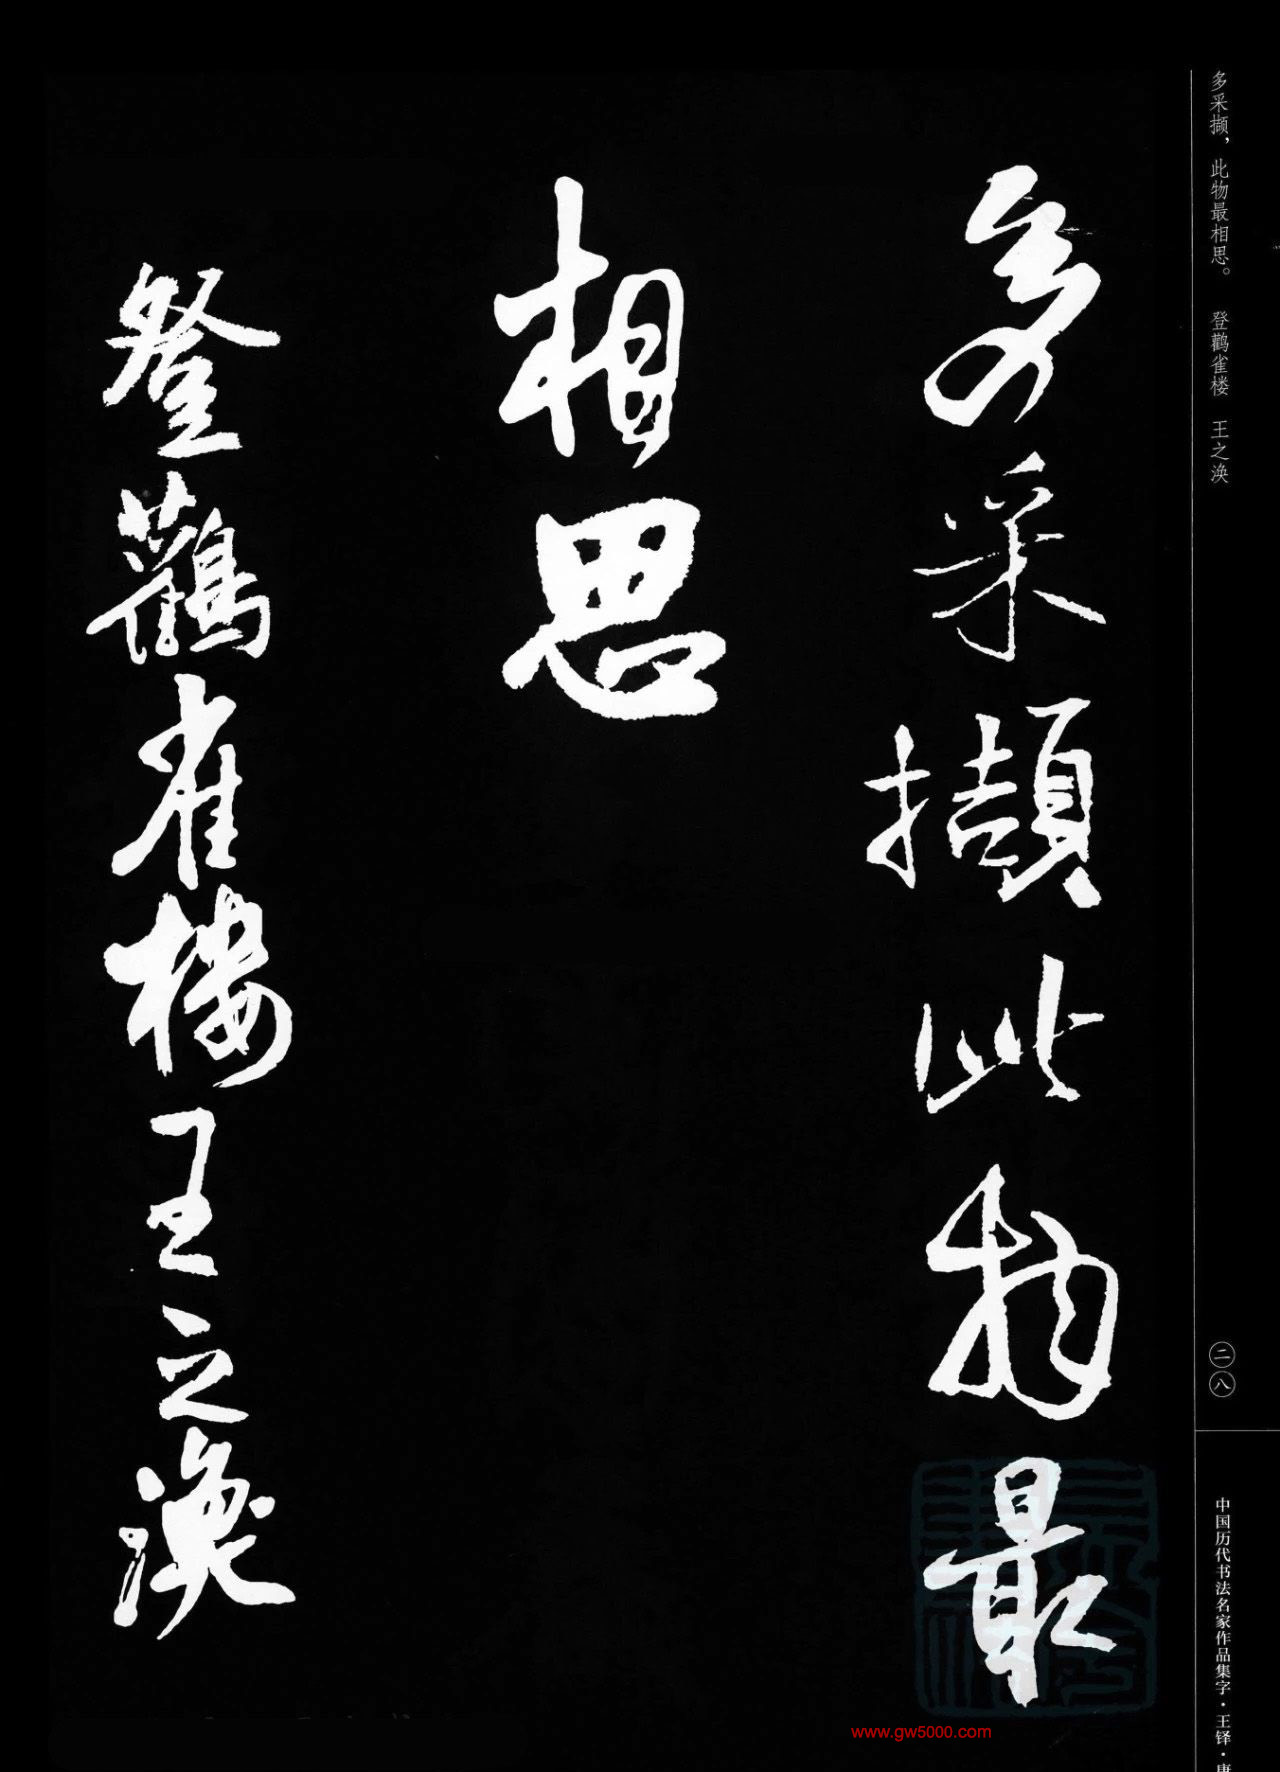 多采撷，此物最相思。 登鹳雀楼 王之涣
二八
中国历代书法名家作品集字·王铎·唐
多采擷此物最
相思
登鸛雀楼王之渙
www.gw5000.com